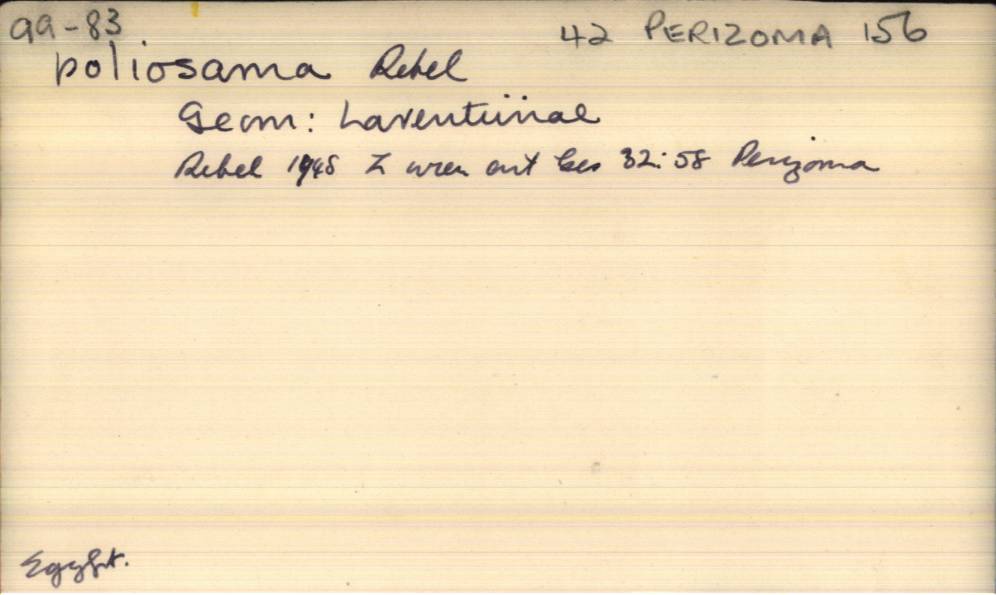 99-83
42 PERIZOMA 156
poliosama Rebel
Geom: Larentiinae
Rebel 1948 Z wien ent Ges 32:58 Perizoma
Egypt.